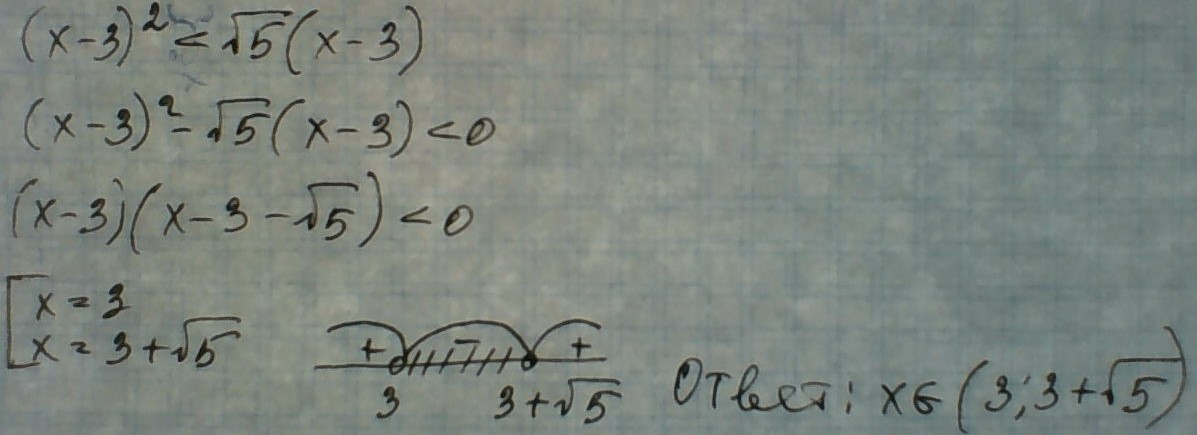 (x-3)² < √5(x-3)
(x-3)² - √5(x-3) < 0
(x-3)(x-3-√5) < 0
[x = 3
x = 3+√5
+ - +
3 3+√5
Ответ: x∈(3;3+√5)